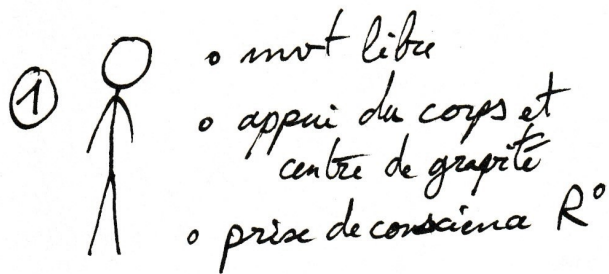 ① ° mvt libre
° appui du corps et
centre de gravité
° prise de conscience R°